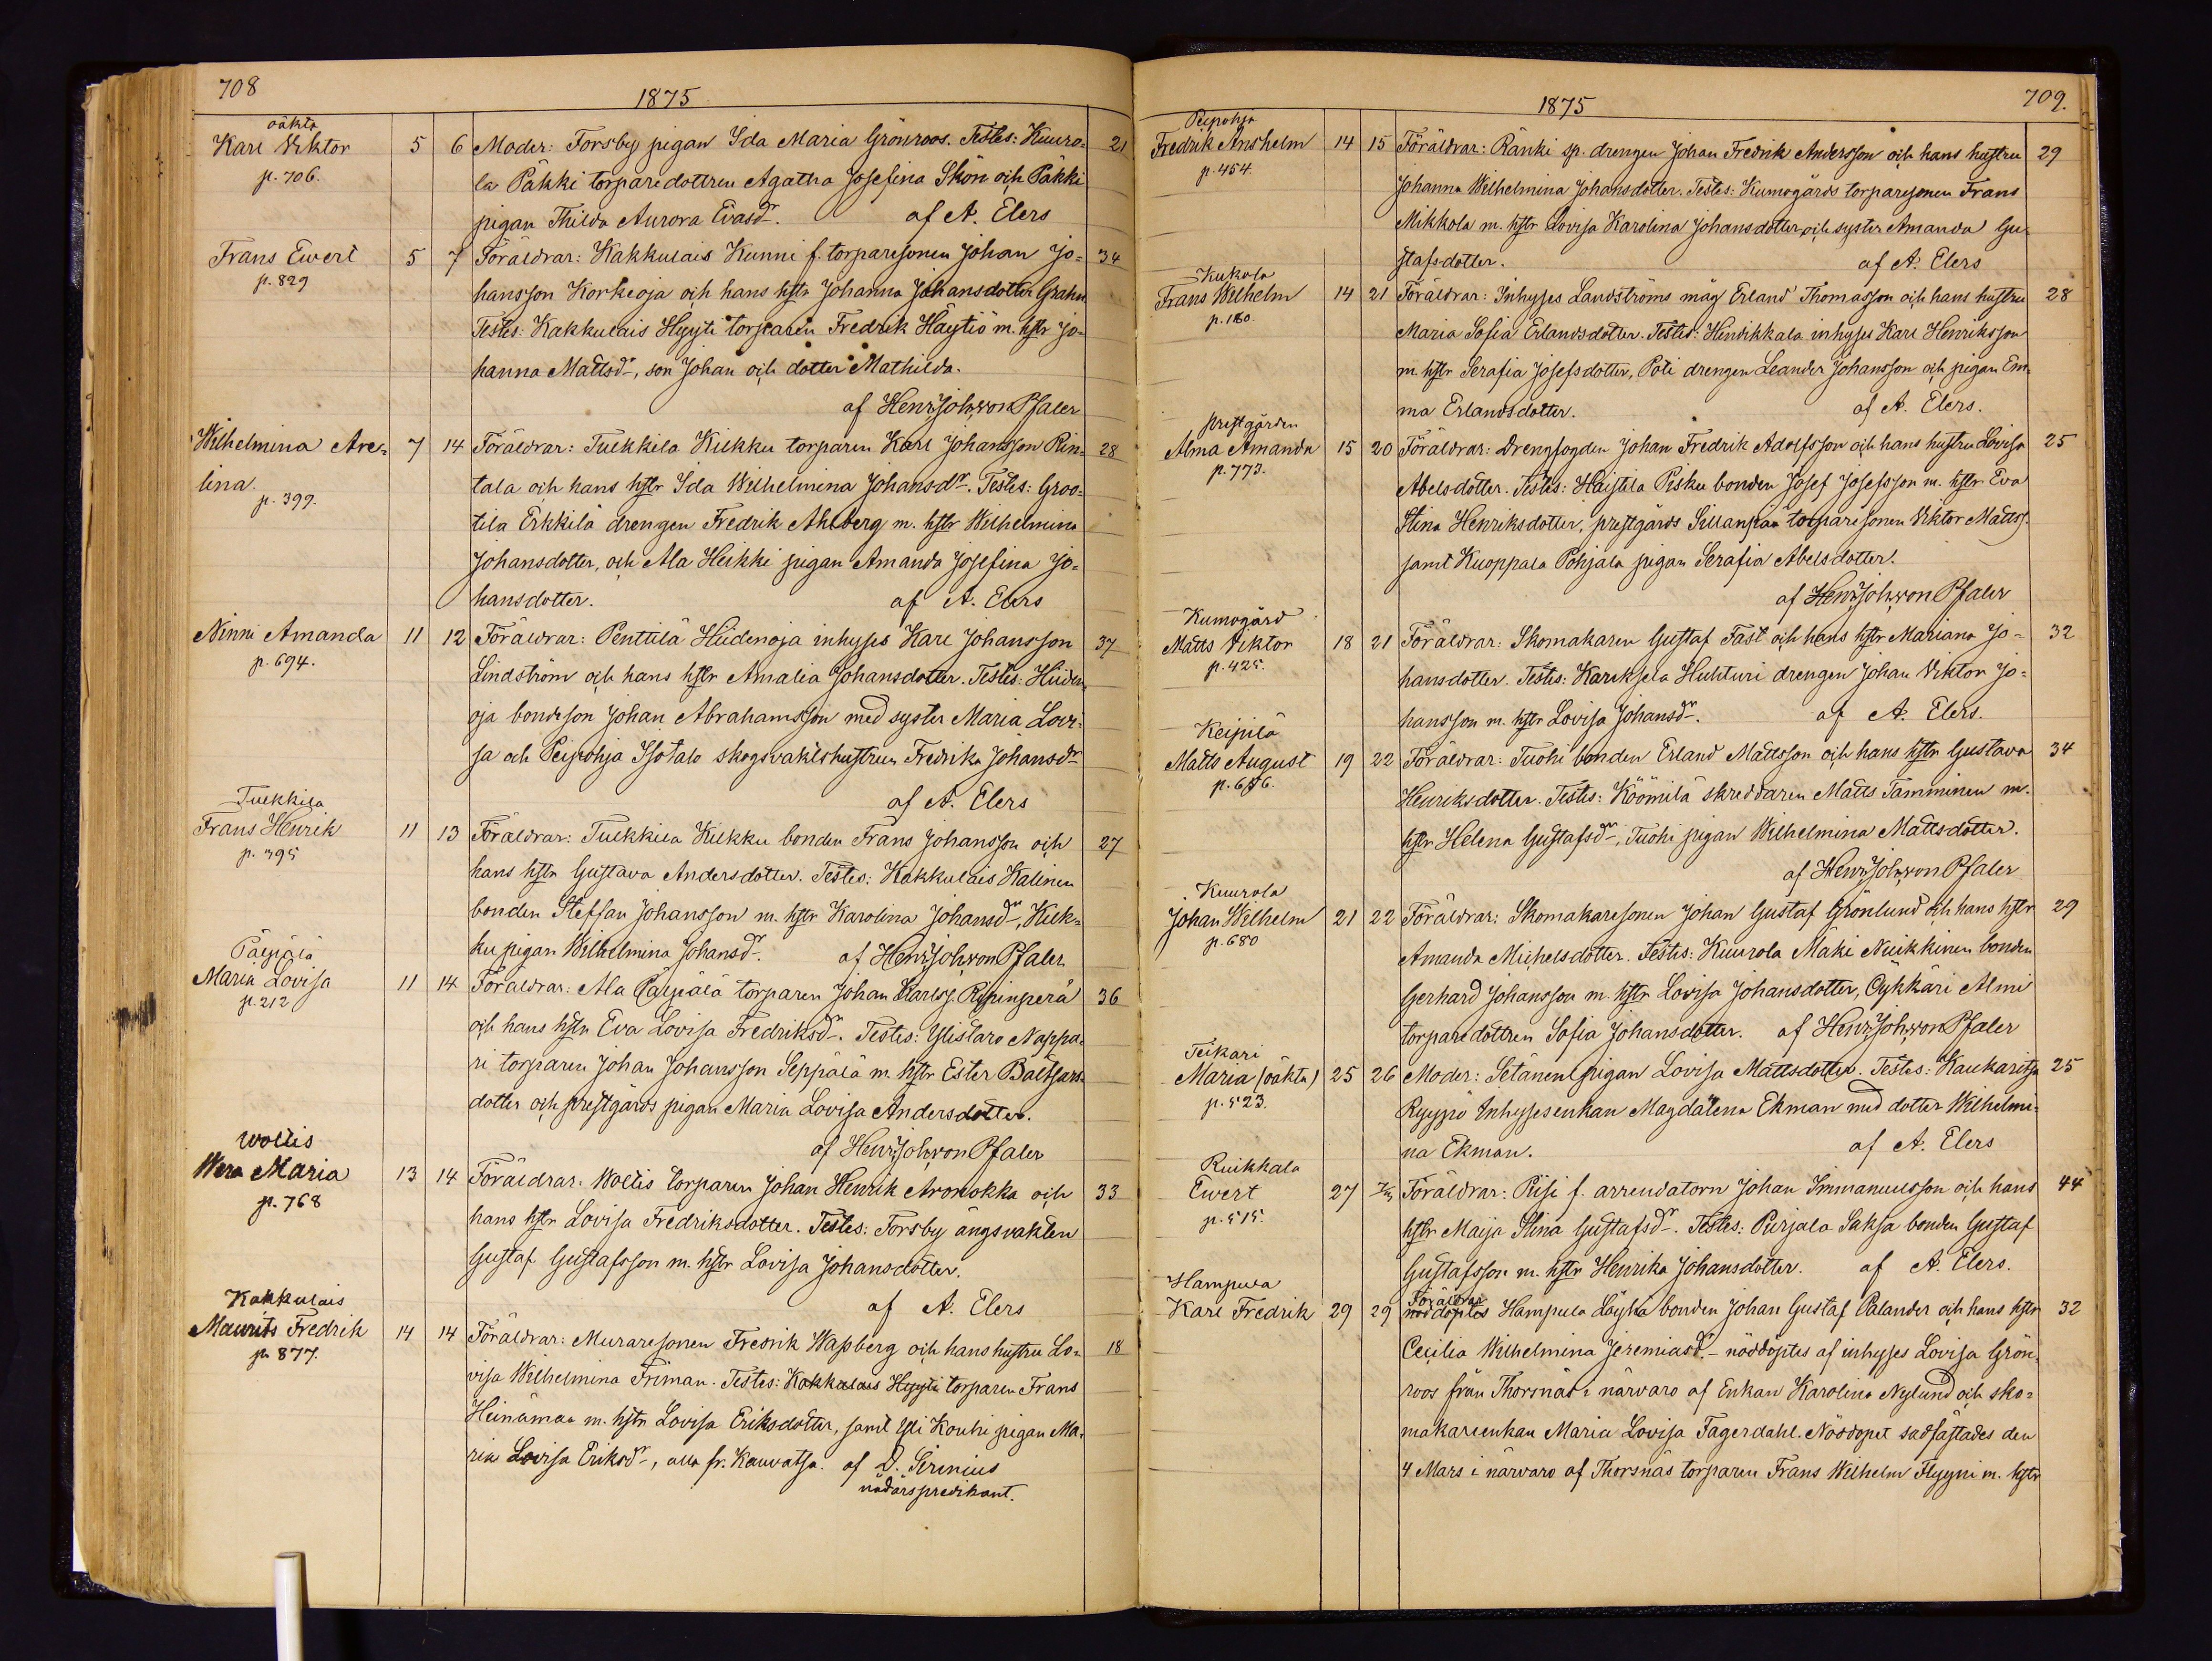 708
1875
oäkta
Karl Viktor 5 6 Moder: Forsby pigan Ida Maria Grönroos. Testes: Kuuro- 21
p. 706. la Päkki torparedottren Agatha Josefina Skön och Päkki
pigan Thilda Aurora Evasdr. af A. Elers
Frans Ewert 5 7 Föräldrar: Kakkulais Kunni f. torparesonen Johan Jo= 34
p. 829 hansson Korkeoja och hans hstr Johanna Johansdotter Grahn
Testes: Kakkulais Hyyti torparen Fredrik Haytiö m. hstr Jo-
hanna Mattsdr, son Johan och dotter Mathilda.
af Henr. Joh. von Pfaler
Wilhelmina Are= 7 14 Föräldrar: Tulkkila Kiukku torparen Karl Johansson Rin= 28
lina tala och hans hstr Ida Wilhelmina Johansdr. Testes: Groo=
p. 399. tila Erkkilä drengen Fredrik Ahlberg m. hstr Wilhelmina
Johansdotter, och Ala Heikki pigan Amanda Josefina Jo=
hansdotter. af A. Elers
Ninni Amanda 11 12 Föräldrar: Penttilä Hiidenoja inhyses Karl Johansson 37
p. 694. Lindström och hans hstr Amalia Johansdotter. Testes: Hiiden
oja bondeson Johan Abrahamsson med syster Maria Lovi-
sa och Peipohja Isotalo skogsvaktshustrun Fredrika Johansdr
af A. Elers
Tulkkila
Frans Henrik 11 13 Föräldrar: Tulkkila Kiukku bonden Frans Johansson och 27
p. 395 hans hstr Gustava Andersdotter. Testes: Kakkulais Kalinen
bonden Steffan Johansson m. hstr Karolina Johansdr, Kiuk=
ku pigan Wilhelmina Johansdr. af Henr. Joh. von Pfaler
Päipälä
Maria Lovisa 11 14 Föräldrar: Ala Päipälä torparen Johan Karlss. Ripinperä 36
p. 212 och hans hstr Eva Lovisa Fredriksdr. Testes: Ylistaro Nappa-
ri torparen Johan Johansson Seppälä m. hstr Ester Baltsars-
dotter och prestgårds pigan Maria Lovisa Andersdotter.
af Henr. Joh. von Pfaler
Woitis
Wera Maria 13 14 Föräldrar: Woitis torparen Johan Henrik Aronokka och 33
p. 768 hans hstr Lovisa Fredriksdotter. Testes: Forsby ängsvakten
Gustaf Gustafsson m. hstr Lovisa Johansdotter.
af A. Elers
Kakkulais
Maurits Fredrik 14 14 Föräldrar: Muraresonen Fredrik Wasberg och hans hustru Lo- 18
p. 877. visa Wilhelmina Friman. Testes: Kakkulais Hyyti torparen Frans
Heinämaa m. hstr Lovisa Eriksdotter, samt Yli Kouhi pigan Ma-
ria Lovisa Eriksdr, alla fr. Kauvatsa. af D. Sirenius
nådårspredikant.
1875
709.
Peipohja
Fredrik Anshelm 14 15 Föräldrar: Ränki sp. drengen Johan Fredrik Andersson och hans hustru 29
p. 454. Johanna Wilhelmina Johansdotter. Testes: Kumogårds torparesonen Frans
Mikkola m. hstr Lovisa Karolina Johansdotter, och syster Amanda Gu-
stafsdotter. af A. Elers
Kukola
Frans Wilhelm 14 21 Föräldrar: Inhyses Landströms måg Erland Thomasson och hans hustru 28
p. 180. Maria Sofia Erlandsdotter. Testes: Hinrikkala inhyses Karl Henriksson
m. hstr Serafia Josefsdotter, Poti drengen Leander Johansson och pigan Em-
ma Erlandsdotter. af A. Elers.
prestgården
Alma Amanda 15 20 Föräldrar: Drengfogden Johan Fredrik Adolfsson och hans hustru Lovisa 25
p. 773. Abelsdotter. Testes: Haistila Pisku bonden Josef Josefsson m. hstr Eva
Stina Henriksdotter, prestgårds Sillanpää torparesonen Viktor Mattss.
samt Kuoppala Pohjala pigan Serafia Abelsdotter.
af Henr. Joh. von Pfaler
Kumogård
Matts Viktor 18 21 Föräldrar: Skomakaren Gustaf Fast och hans hstr Mariana Jo= 32
p. 425. hansdotter. Testes: Kareksela Huhturi drengen Johan Viktor Jo=
hansson m. hstr Lovisa Johansdr. af A. Elers.
Keipilä
Matts August 19 22 Föräldrar: Tuohi bonden Erland Mattsson och hans hstr Gustava 34
Henriksdotter. Testes: Köömilä skreddaren Matts Tamminen m.
hstr Helena Gustafsdr, Tuohi pigan Wilhelmina Mattsdotter.
af Henr. Joh. von Pfaler
Kuurola
Johan Wilhelm 21 22 Föräldrar: Skomakaresonen Johan Gustaf Grönlund och hans hstr 29
p. 680 Amanda Michelsdotter. Testes: Kuurola Mäki Nuikkinen bonden
Gerhard Johansson m. hstr Lovisa Johansdotter, Öykkäri Almi
torparedottren Sofia Johansdotter. af Henr. Joh. von Pfaler
Teikari
Maria (oäkta) 25 26 Moder: Setänen pigan Lovisa Mattsdotter. Testes: Kaukaritsa 25
p. 523. Ryyppö Inhysesenkan Magdalena Ekman med dotter Wilhelmi-
na Ekman. af A. Elers
Ruikkala
Ewert 27 Föräldrar: Piisi f. arrendatorn Johan Immanuelsson och hans 44
p. 515. hstr Maija Stina Gustafsdr. Testes: Purjala Saksa bonden Gustaf
Gustafsson m. hstr Henrika Johansdotter. af A. Elers.
Hampula
Föräldrar
Karl Fredrik 29 29 nöddöptes Hampula Löyttä bonden Johan Gustaf Palander och hans hstr 32
Cecilia Wilhelmina Jeremiasdr. - nöddöptes af inhyses Lovisa Grön-
roos från Thorsnäs i närvaro af Enkan Karolina Nylund och sko=
makareenkan Maria Lovisa Fagerdahl. Nöddopet stadfästades den
4 Mars i närvaro af Thorsnäs torparen Frans Wilhelm Flyyni m. hstr